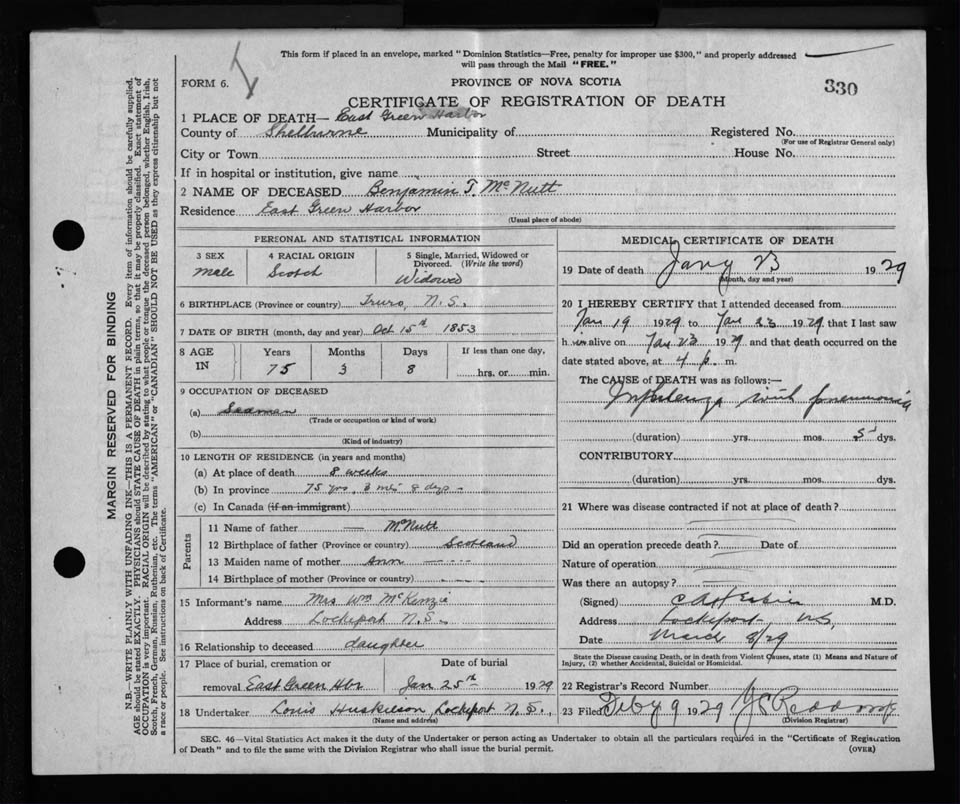 This form if placed in an envelope, marked "Dominion Statistics—Free, penalty for improper use $300," and properly addressed
will pass through the Mail "FREE."
FORM 6.
PROVINCE OF NOVA SCOTIA
330
CERTIFICATE OF REGISTRATION OF DEATH
1 PLACE OF DEATH— East Green Harbor
County of Shelburne Municipality of Registered No.
(For use of Registrar General only)
City or Town Street House No.
If in hospital or institution, give name
2 NAME OF DECEASED Benjamin T. McNutt
Residence East Green Harbor
(Usual place of abode)
PERSONAL AND STATISTICAL INFORMATION
3 SEX 4 RACIAL ORIGIN 5 Single, Married, Widowed or
Divorced. (Write the word)
male Scotch Widowed
6 BIRTHPLACE (Province or country) Truro, N.S.
7 DATE OF BIRTH (month, day and year) Oct 15th 1853
8 AGE IN Years Months Days If less than one day,
75 3 8 hrs. or min.
9 OCCUPATION OF DECEASED
(a) Seaman
(Trade or occupation or kind of work)
(b)
(Kind of industry)
10 LENGTH OF RESIDENCE (in years and months)
(a) At place of death 8 weeks
(b) In province 75 yrs, 3 mos 8 days -
(c) In Canada (if an immigrant)
Parents
11 Name of father — McNutt
12 Birthplace of father (Province or country) Scotland
13 Maiden name of mother Ann - - - -
14 Birthplace of mother (Province or country) - - - -
15 Informant's name Mrs Wm McKenzie
Address Lockeport N.S.
16 Relationship to deceased daughter
17 Place of burial, cremation or Date of burial
removal East Green Hbr Jan 25th 1929
18 Undertaker Louis Huskilson, Lockeport N.S.,
(Name and address)
MEDICAL CERTIFICATE OF DEATH
19 Date of death Jany 23 1929
(Month, day and year)
20 I HEREBY CERTIFY that I attended deceased from
Jan 19 1929 to Jan 23 1929 that I last saw
h im alive on Jan 23 1929 and that death occurred on the
date stated above, at 4 p. m.
The CAUSE of DEATH was as follows:—
Influenza with pneumonia
(duration) yrs. mos. 5 dys.
CONTRIBUTORY
(duration) yrs. mos. dys.
21 Where was disease contracted if not at place of death?
Did an operation precede death? Date of
Nature of operation
Was there an autopsy?
(Signed) M.D.
Address Lockeport, N.S.
Date March 8/29
State the Disease causing Death, or in death from Violent Causes, state (1) Means and Nature of
Injury, (2) whether Accidental, Suicidal or Homicidal.
22 Registrar's Record Number
23 Filed Feby 9 1929
(Division Registrar)
SEC. 46—Vital Statistics Act makes it the duty of the Undertaker or person acting as Undertaker to obtain all the particulars required in the "Certificate of Registration
of Death" and to file the same with the Division Registrar who shall issue the burial permit.
(OVER)
MARGIN RESERVED FOR BINDING
N.B.—WRITE PLAINLY WITH UNFADING INK—THIS IS A PERMANENT RECORD. Every item of information should be carefully supplied.
AGE should be stated EXACTLY. PHYSICIANS should STATE CAUSE OF DEATH in plain terms, so that it may be properly classified. Exact statement of
OCCUPATION is very important. RACIAL ORIGIN will be described by stating to what people or tongue the deceased person belonged, whether English, Irish,
Scotch, French, German, Russian, Ruthenian, etc. The terms "AMERICAN" or "CANADIAN" SHOULD NOT BE USED as they express citizenship but not
a race or people. See instructions on back of Certificate.